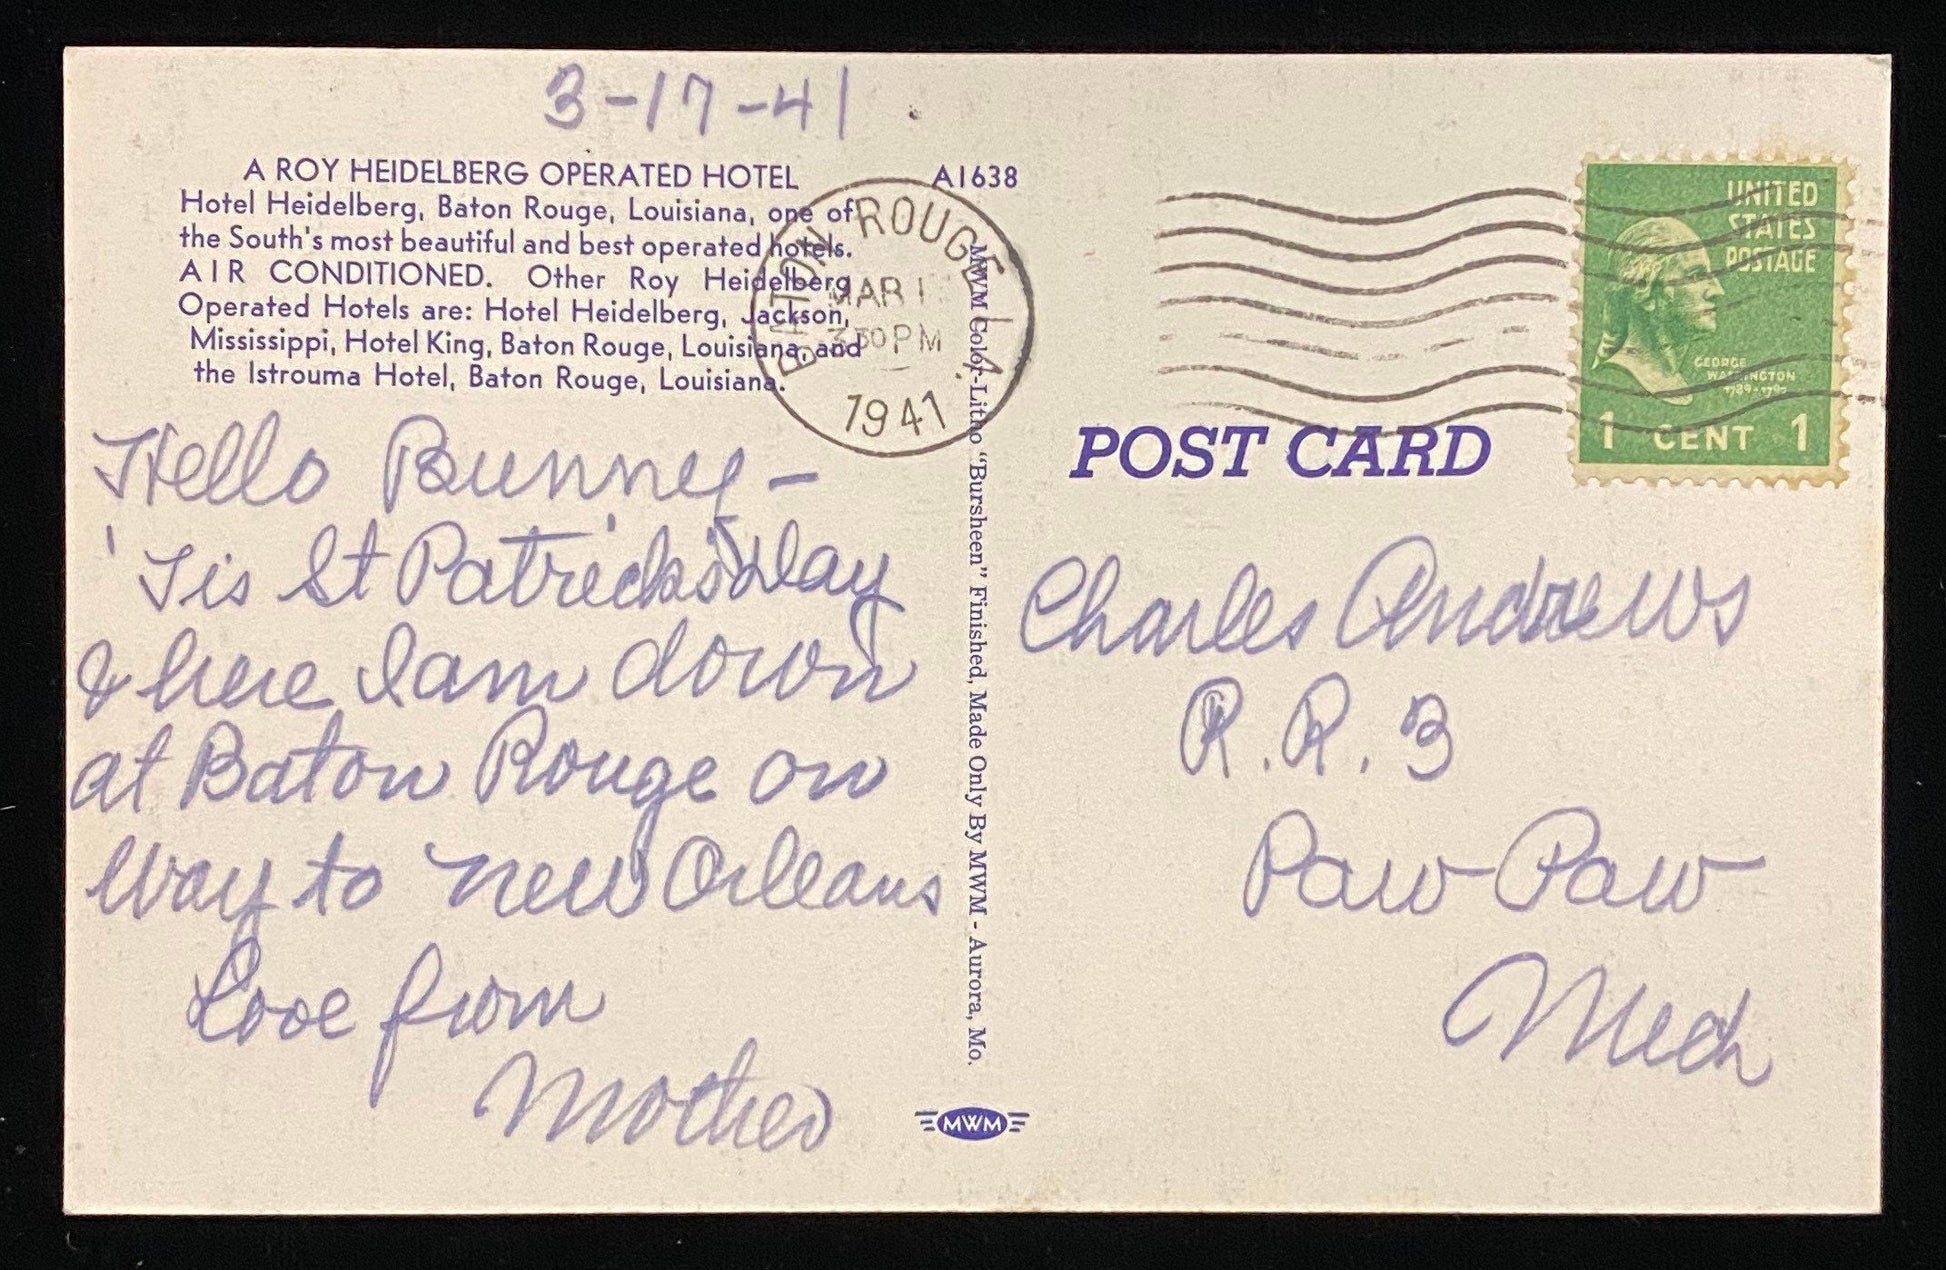 3-17-41
A ROY HEIDELBERG OPERATED HOTEL
A1638
Hotel Heidelberg, Baton Rouge, Louisiana, one of
the South's most beautiful and best operated hotels.
AIR CONDITIONED. Other Roy Heidelberg
Operated Hotels are: Hotel Heidelberg, Jackson,
Mississippi, Hotel King, Baton Rouge, Louisiana, and
the Istrouma Hotel, Baton Rouge, Louisiana.
Hello Bunney-
'Tis St Patrick's Day
& here I am down
at Baton Rouge on
way to New Orleans
Love from
Mother
BATON ROUGE
MAR
3 30 PM
1941
MWM Color-Litho "Bursheen" Finished, Made Only By MWM - Aurora, Mo.
MWM
UNITED
STATES
POSTAGE
GEORGE
WASHINGTON
1789-1797
1 CENT 1
POST CARD
Charles Andrews
R.R. 3
Paw-Paw
Mich